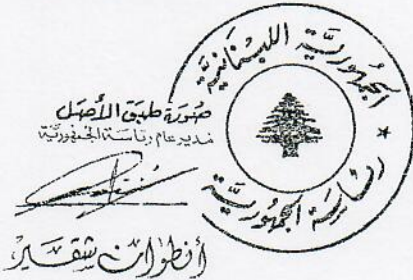 الجمهوريّة اللبنانية
رئاسة الجمهوريّة
صورة طبق الأصل
مدير عام رئاسة الجمهوريّة
أنطوان شقير